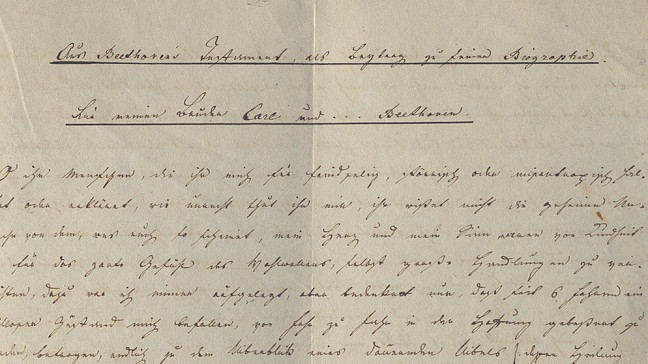 Aus Beethoven's Testament, als Beytrag zu seiner Biographie.
Für meinen Bruder Carl und ... Beethoven.
O ihr Menschen, die ihr mich für feindselig, störrisch oder misantropisch hal-
tet oder erkläret, wie unrecht thut ihr mir, ihr wißet nicht die geheime Ur-
che von dem, was euch so scheinet, mein Herz und mein Sinn waren von Kindheit
für das zarte Gefühl des Wohlwollens, selbst große Handlungen zu ver-
ichten, dazu war ich immer aufgelegt, aber bedenket nur, daß seit 6 Jahren ein
illoser Zustand mich befallen, von Jahr zu Jahr in der Hoffnung gebessert zu
rden, betrogen, endlich zu dem Überblick eines dauernden Übels / deßen Heilung